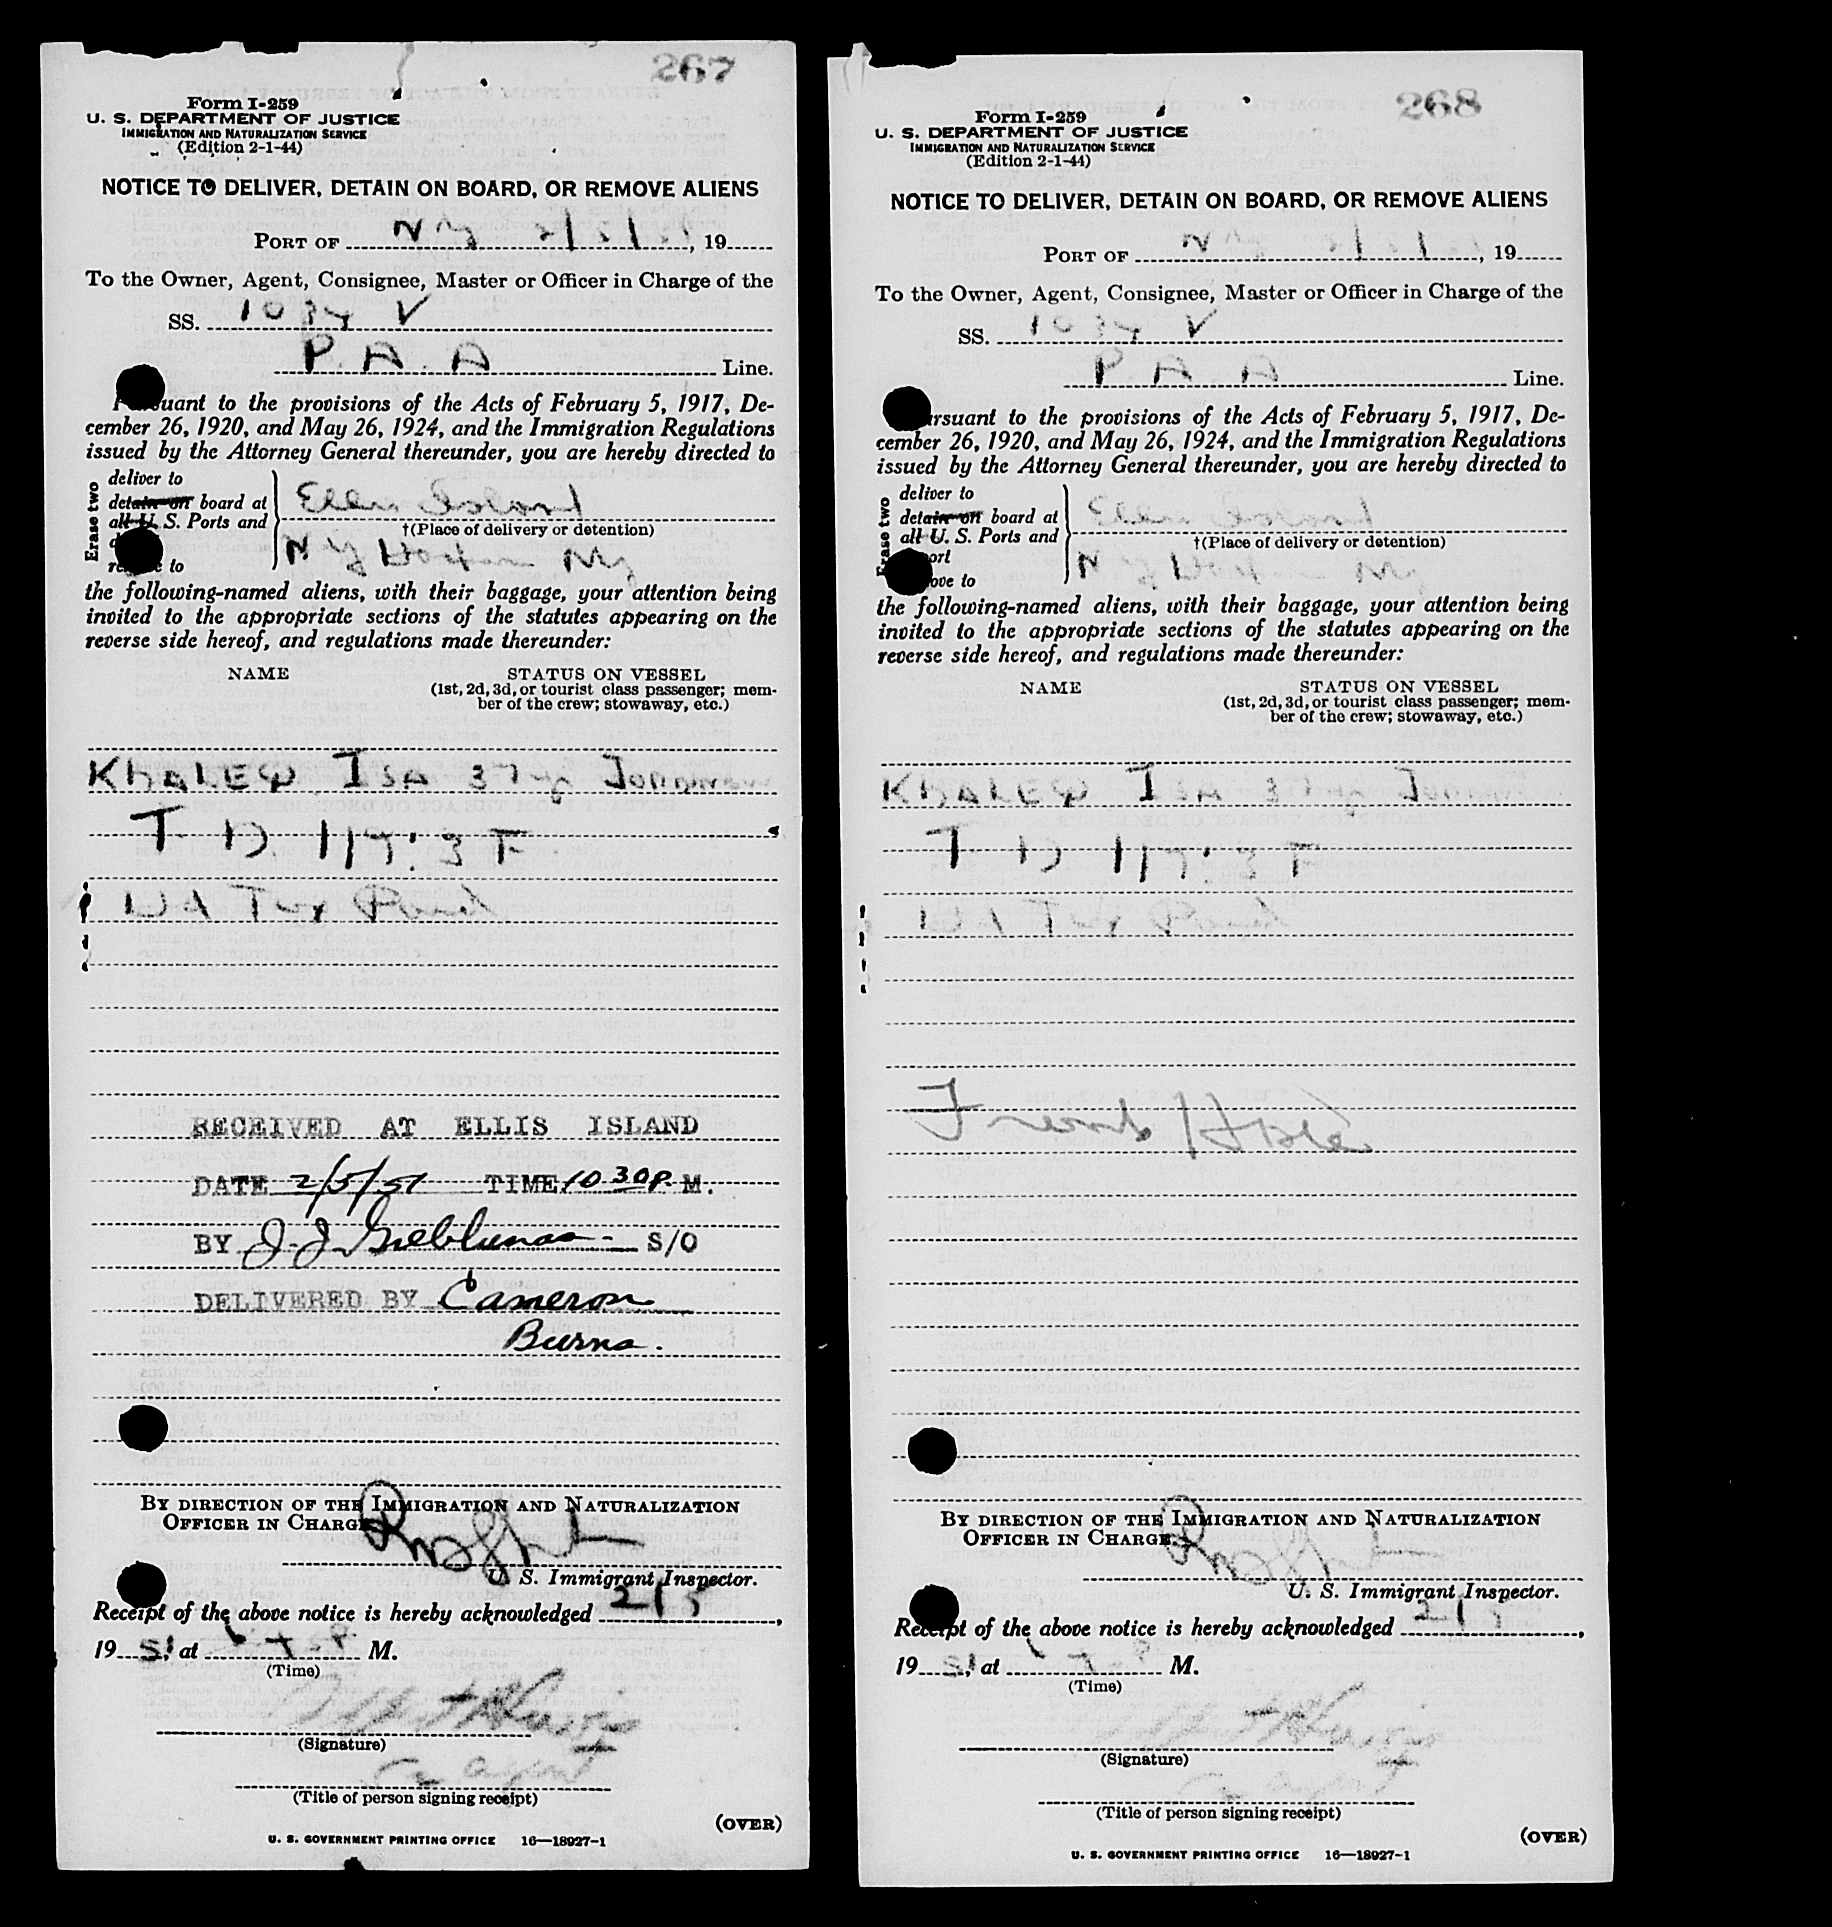 267
Form I-259
U. S. DEPARTMENT OF JUSTICE
IMMIGRATION AND NATURALIZATION SERVICE
(Edition 2-1-44)
NOTICE TO DELIVER, DETAIN ON BOARD, OR REMOVE ALIENS
PORT OF NY 2/5/51, 19
To the Owner, Agent, Consignee, Master or Officer in Charge of the
SS. 1034 V
P. A. A Line.
Pursuant to the provisions of the Acts of February 5, 1917, De-
cember 26, 1920, and May 26, 1924, and the Immigration Regulations
issued by the Attorney General thereunder, you are hereby directed to
Erase two
deliver to
detain on board at
all U. S. Ports and
to
Ellis Island
†(Place of delivery or detention)
N Y Harbor NY
the following-named aliens, with their baggage, your attention being
invited to the appropriate sections of the statutes appearing on the
reverse side hereof, and regulations made thereunder:
NAME STATUS ON VESSEL
(1st, 2d, 3d, or tourist class passenger; mem-
ber of the crew; stowaway, etc.)
KHALEW ISA 37 y
T. D. 117.3 F
Hd Tax Paid
RECEIVED AT ELLIS ISLAND
DATE 2/5/51 TIME 10 30 P. M.
BY J. J. S/O
DELIVERED BY Cameron
Burns.
BY DIRECTION OF THE IMMIGRATION AND NATURALIZATION
OFFICER IN CHARGE.
U. S. Immigrant Inspector.
Receipt of the above notice is hereby acknowledged 2/5,
19 51, at P M.
(Time)
(Signature)
Agent
(Title of person signing receipt)
(OVER)
U. S. GOVERNMENT PRINTING OFFICE 16—18927-1
268
Form I-259
U. S. DEPARTMENT OF JUSTICE
IMMIGRATION AND NATURALIZATION SERVICE
(Edition 2-1-44)
NOTICE TO DELIVER, DETAIN ON BOARD, OR REMOVE ALIENS
PORT OF NY 2/5/51, 19
To the Owner, Agent, Consignee, Master or Officer in Charge of the
SS. 1034 V
P. A. A Line.
Pursuant to the provisions of the Acts of February 5, 1917, De-
cember 26, 1920, and May 26, 1924, and the Immigration Regulations
issued by the Attorney General thereunder, you are hereby directed to
Erase two
deliver to
detain on board at
all U. S. Ports and
to
Ellis Island
†(Place of delivery or detention)
N Y Harbor NY
the following-named aliens, with their baggage, your attention being
invited to the appropriate sections of the statutes appearing on the
reverse side hereof, and regulations made thereunder:
NAME STATUS ON VESSEL
(1st, 2d, 3d, or tourist class passenger; mem-
ber of the crew; stowaway, etc.)
KHALEW ISA 37 y
T D 117.3 F
Hd Tax Paid
BY DIRECTION OF THE IMMIGRATION AND NATURALIZATION
OFFICER IN CHARGE.
U. S. Immigrant Inspector.
Receipt of the above notice is hereby acknowledged 2/5,
19 51, at P M.
(Time)
(Signature)
Agent
(Title of person signing receipt)
(OVER)
U. S. GOVERNMENT PRINTING OFFICE 16—18927-1